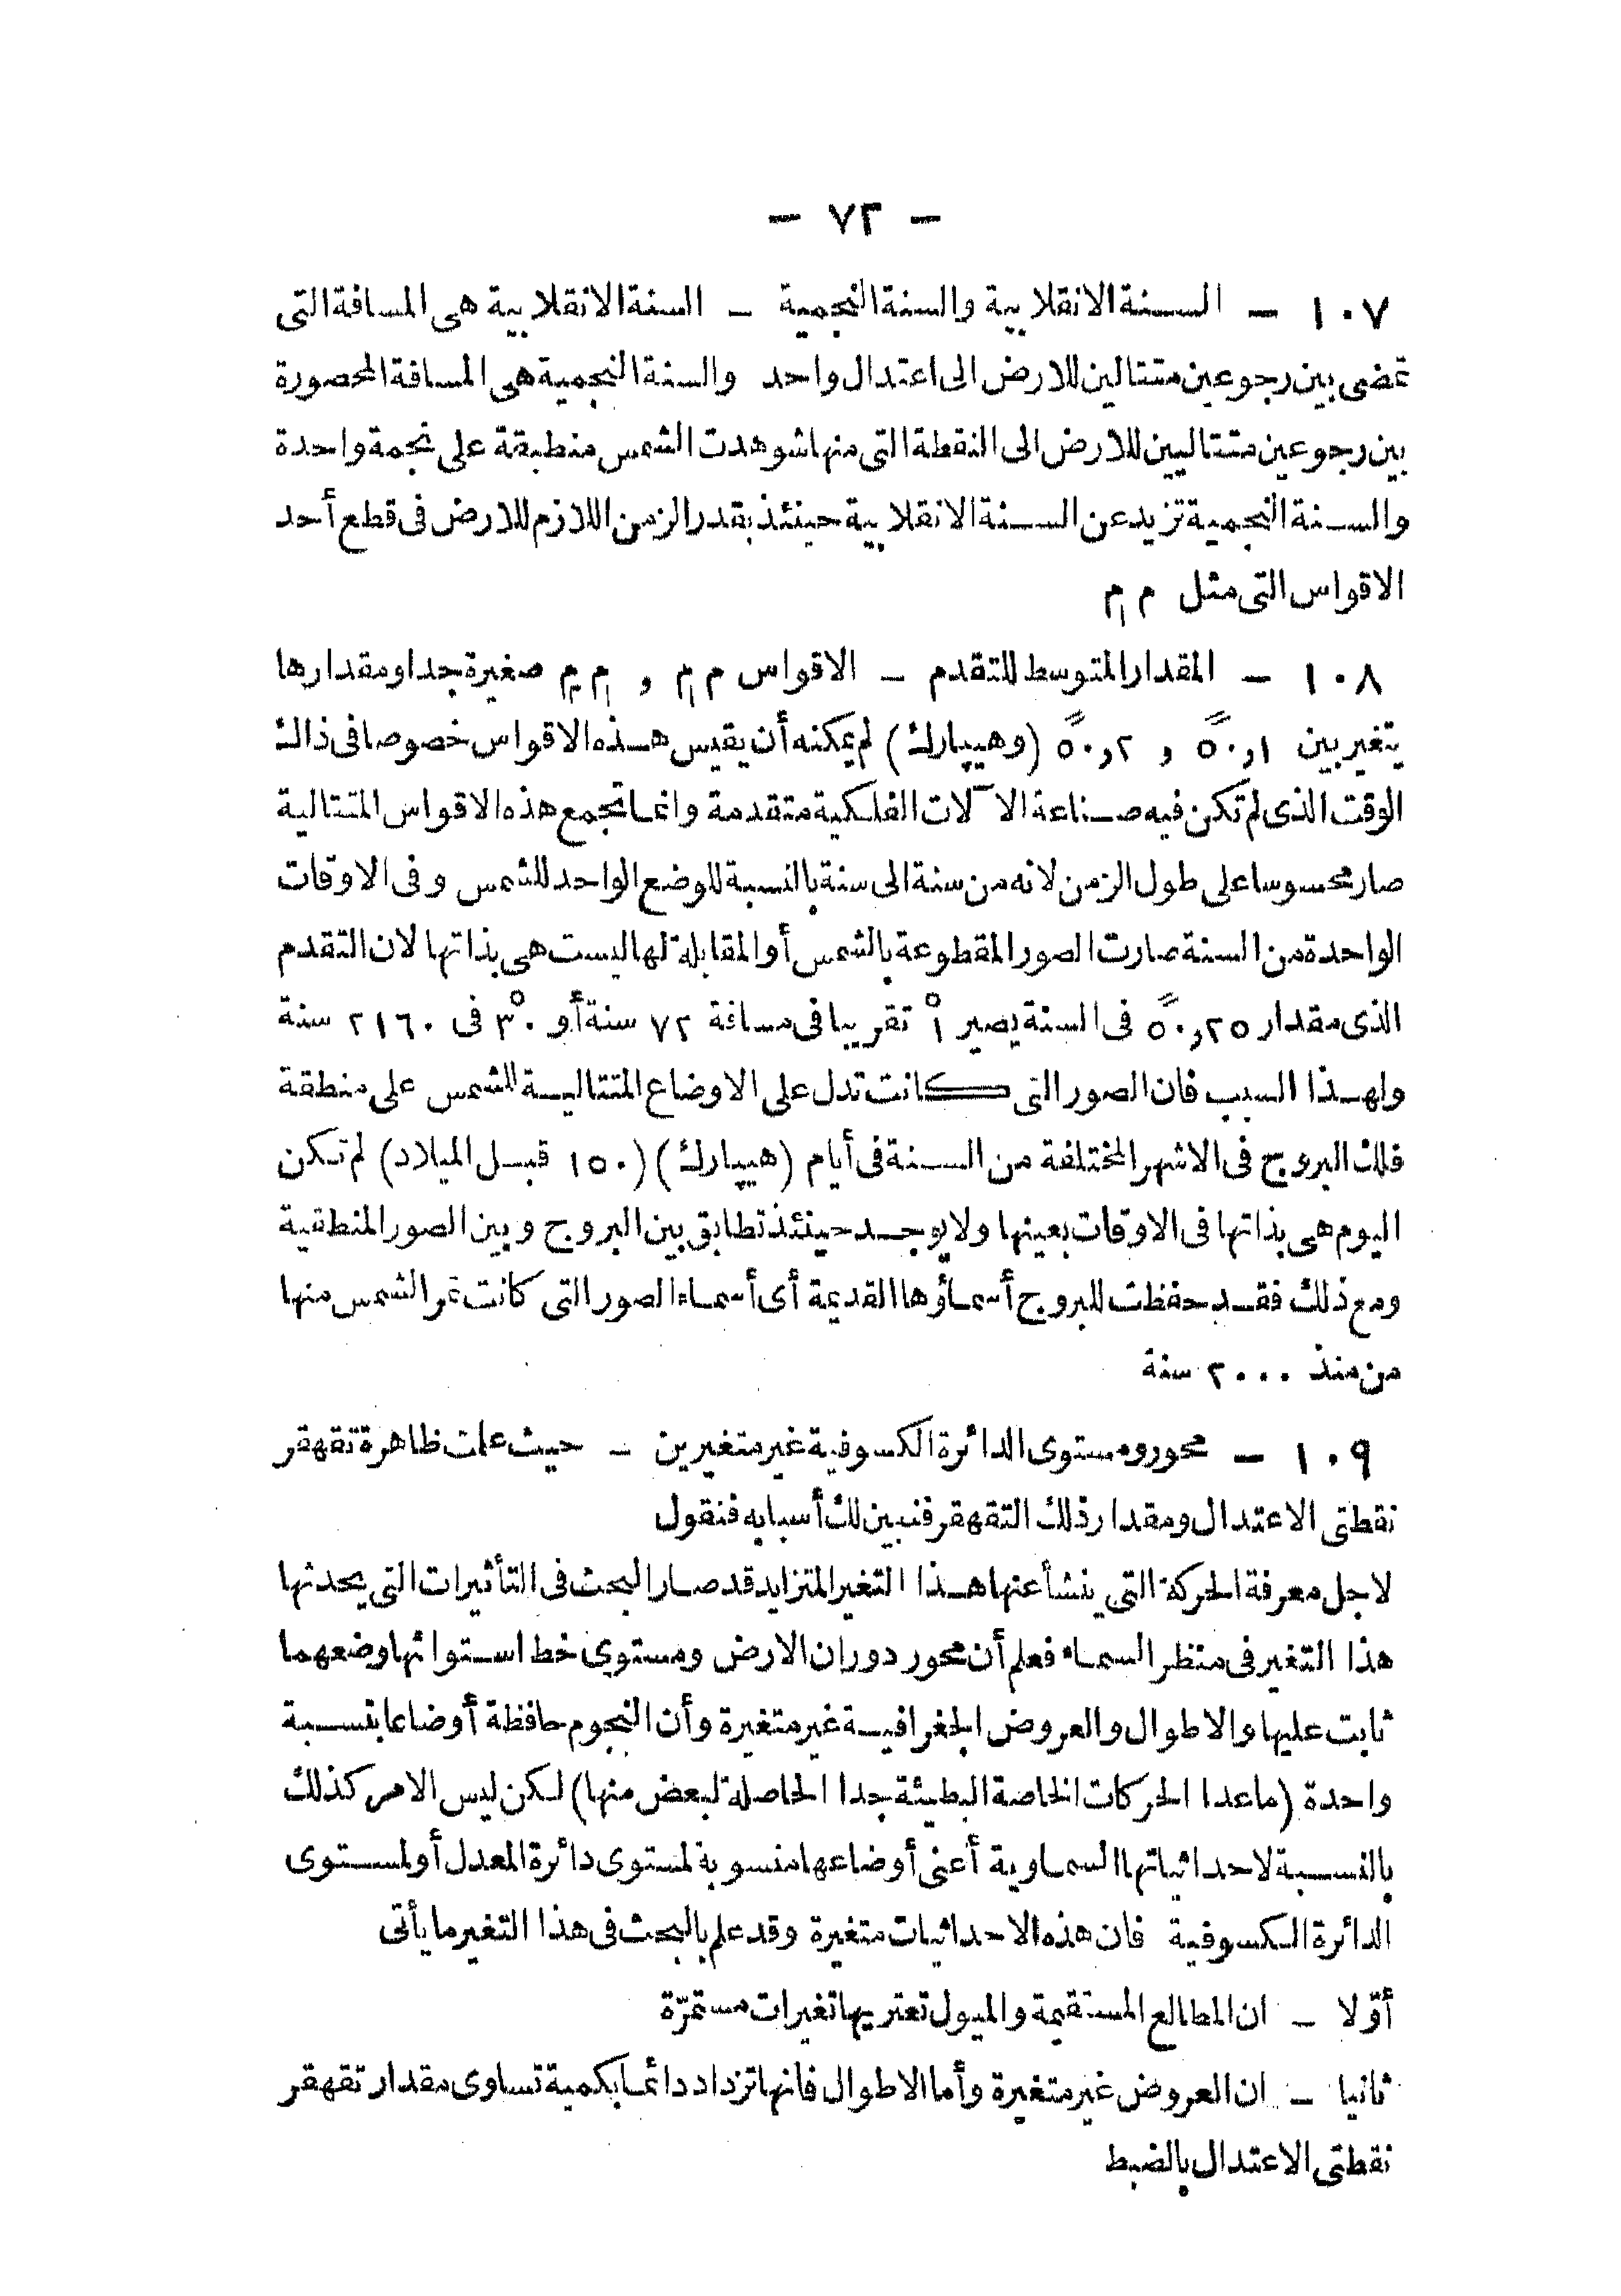 — ٧٣ —
١٠٧ — السنة الانقلابية والسنة النجمية — السنة الانقلابية هى المسافة التى
تمضى بين رجوعين متتالين للارض الى اعتدال واحد والسنة النجمية هى المسافة المحصورة
بين رجوعين متتاليين للارض الى النقطة التى منها شوهدت الشمس منطبقة على نجمة واحدة
والسنة النجمية تزيد عن السنة الانقلابية حينئذ بقدر الزمن اللازم للارض فى قطع أحد
الاقواس التى مثل م م
١٠٨ — المقدار المتوسط للتقدم — الاقواس م م و م م صغيرة جدا ومقدارها
يتغير بين ٥٠,١ً و ٥٠,٢ً (وهيپارك) لم يمكنه أن يقيس هذه الاقواس خصوصا فى ذاك
الوقت الذى لم تكن فيه صناعة الآلات الفلكية متقدمة وانما تجمع هذه الاقواس المتتالية
صار محسوسا على طول الزمن لانه من سنة الى سنة بالنسبة للوضع الواحد للشمس وفى الاوقات
الواحدة من السنة صارت الصور المقطوعة بالشمس أو المقابلة لها ليست هى بذاتها لان التقدم
الذى مقدار ٥٠,٢٥ً فى السنة يصير ١° تقريبا فى مسافة ٧٢ سنة أو ٣٠° فى ٢١٦٠ سنة
ولهذا السبب فان الصور التى كانت تدل على الاوضاع المتتالية للشمس على منطقة
فلك البروج فى الاشهر المختلفة من السنة فى أيام (هيپارك) (١٥٠ قبل الميلاد) لم تكن
اليوم هى بذاتها فى الاوقات بعينها ولا يوجد حينئذ تطابق بين البروج وبين الصور المنطقية
ومع ذلك فقد حفظت للبروج أسماؤها القديمة أى أسماء الصور التى كانت تمر الشمس منها
من منذ ٢٠٠٠ سنة
١٠٩ — محور ومستوى الدائرة الكسوفية غير متغيرين — حيث علمت ظاهرة تقهقر
نقطتى الاعتدال ومقدار ذلك التقهقر فنبين لك أسبابه فنقول
لاجل معرفة الحركة التى ينشأ عنها هذا التغير المتزايد قد صار البحث فى التأثيرات التى يحدثها
هذا التغير فى منظر السماء فعلم أن محور دوران الارض ومستوى خط استوائها وضعهما
ثابت عليها والاطوال والعروض الجغرافية غير متغيرة وأن النجوم حافظة أوضاعا بنسبة
واحدة (ماعدا الحركات الخاصة البطيئة جدا الحاصلة لبعض منها) لكن ليس الامر كذلك
بالنسبة لاحداثياتها السماوية أعنى أوضاعها منسوبة لمستوى دائرة المعدل أو لمستوى
الدائرة الكسوفية فان هذه الاحداثيات متغيرة وقد علم بالبحث فى هذا التغير ما يأتى
أوّلا — ان المطالع المستقيمة والميول تعتريها تغيرات مستمرّة
ثانيا — ان العروض غير متغيرة وأما الاطوال فانها تزداد دائما بكمية تساوى مقدار تقهقر
نقطتى الاعتدال بالضبط